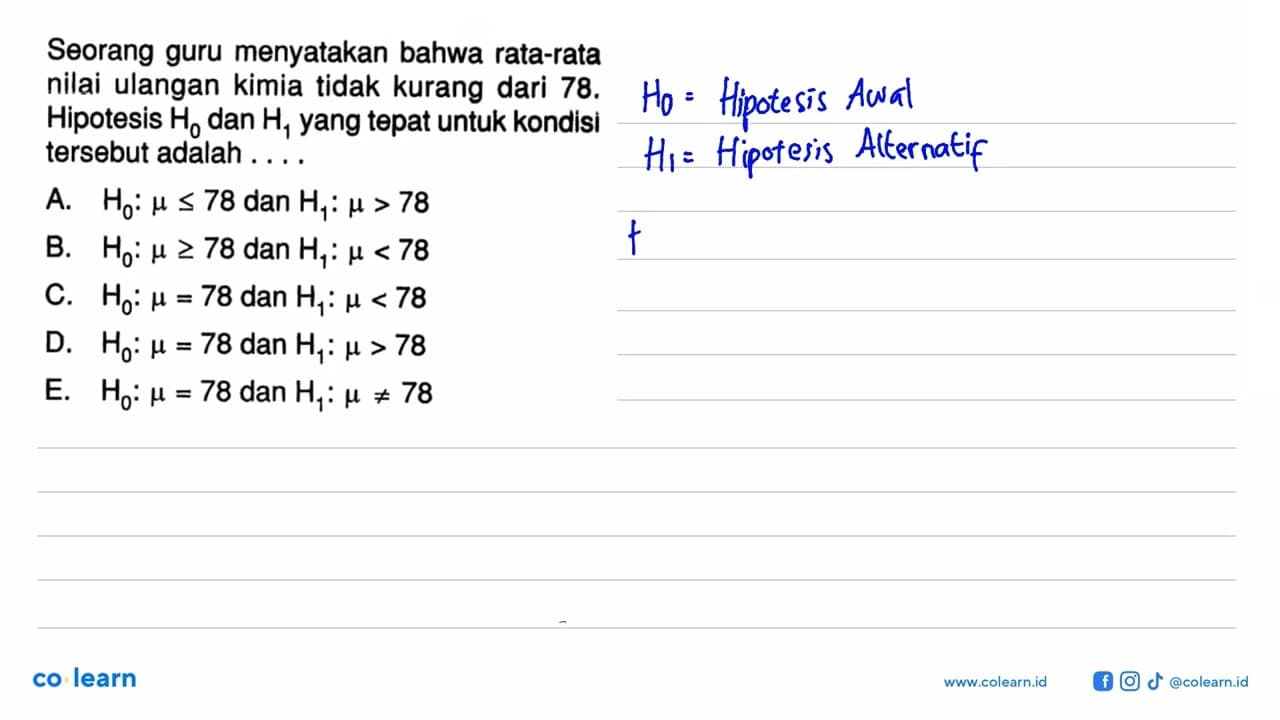 Seorang guru menyatakan bahwa rata-rata
nilai ulangan kimia tidak kurang dari 78.
Hipotesis H₀ dan H₁ yang tepat untuk kondisi
tersebut adalah . . . .
A. H₀: μ ≤ 78 dan H₁: μ > 78
B. H₀: μ ≥ 78 dan H₁: μ < 78
C. H₀: μ = 78 dan H₁: μ < 78
D. H₀: μ = 78 dan H₁: μ > 78
E. H₀: μ = 78 dan H₁: μ ≠ 78
H₀ = Hipotesis Awal
H₁ = Hipotesis Alternatif
co learn
www.colearn.id
@colearn.id